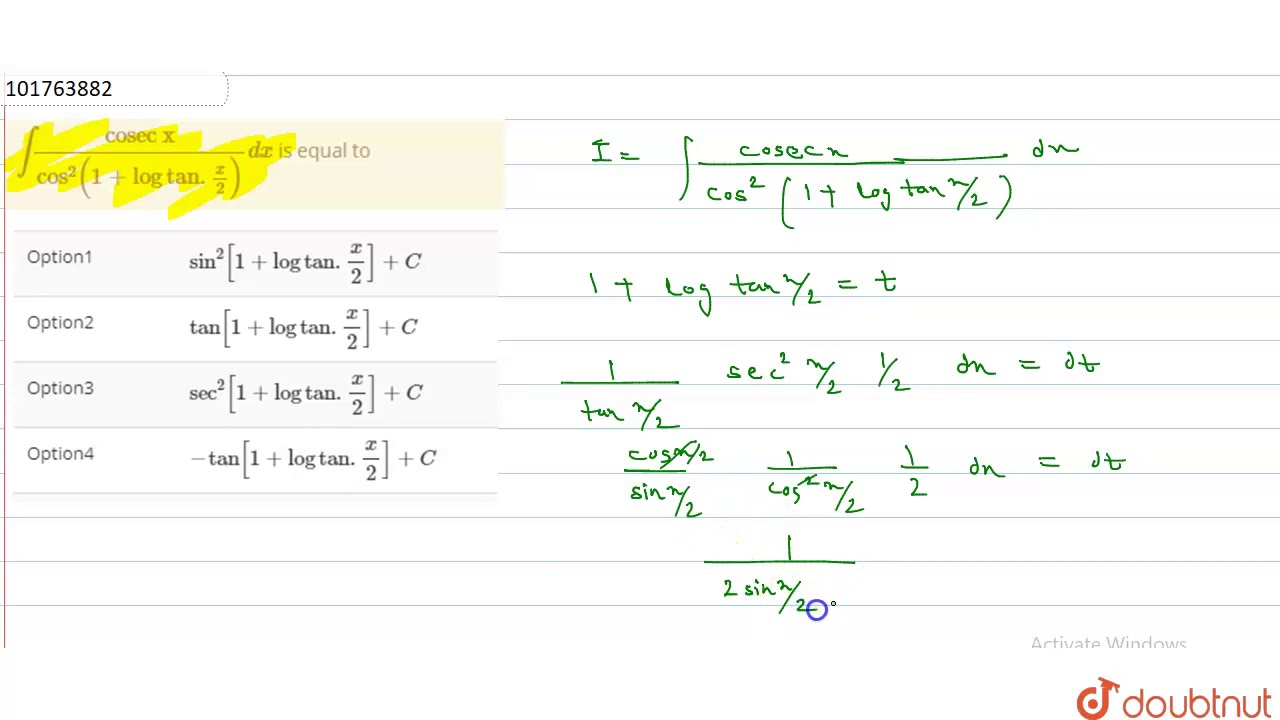 101763882
∫ cosec x / cos²(1 + log tan. x/2) dx is equal to
Option1 sin²[1 + log tan. x/2] + C
Option2 tan[1 + log tan. x/2] + C
Option3 sec²[1 + log tan. x/2] + C
Option4 −tan[1 + log tan. x/2] + C
I = ∫ cosec x / cos² (1 + log tan x/2) dx
1 + log tan x/2 = t
1 / tan x/2 sec² x/2 1/2 dx = dt
cos x/2 / sin x/2 1 / cos² x/2 1/2 dx = dt
1 / 2 sin x/2
Activate Windows
doubtnut